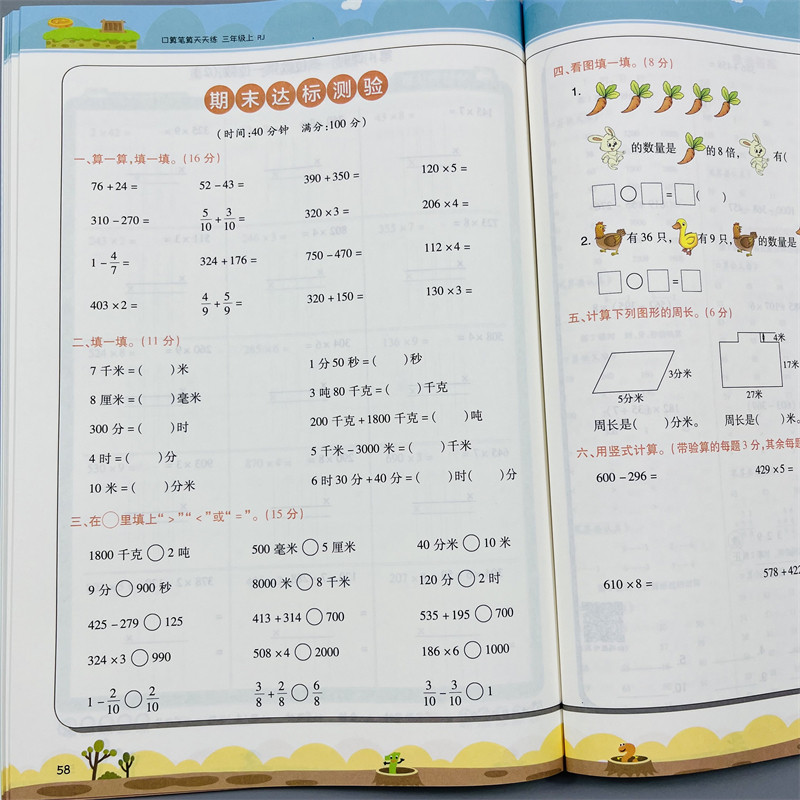 口算笔算天天练 三年级上 RJ
期末达标测验
(时间:40分钟 满分:100分)
一、算一算,填一填。(16分)
76+24= 52-43= 390+350= 120×5=
310-270= 5/10+3/10= 320×3= 206×4=
1-4/7= 324+176= 750-470= 112×4=
403×2= 4/9+5/9= 320+150= 130×3=
二、填一填。(11分)
7千米=( )米 1分50秒=( )秒
8厘米=( )毫米 3吨80千克=( )千克
300分=( )时 200千克+1800千克=( )吨
4时=( )分 5千米-3000米=( )千米
10米=( )分米 6时30分+40分=( )时( )分
三、在○里填上“>”“<”或“=”。(15分)
1800千克○2吨 500毫米○5厘米 40分米○10米
9分○900秒 8000米○8千米 120分○2时
425-279○125 413+314○700 535+195○700
324×3○990 508×4○2000 186×6○1000
1-2/10○2/10 3/8+2/8○6/8 3/10-3/10○1
58
四、看图填一填。(8分)
1.
的数量是 的8倍, 有(
□○□=□( )
2. 有36只, 有9只, 的数量是
□○□=□
五、计算下列图形的周长。(6分)
4米
3分米 17米
5分米 27米
周长是( )分米。 周长是( )米。
六、用竖式计算。(带验算的每题3分,其余每题
600-296= 429×5=
610×8= 578+422